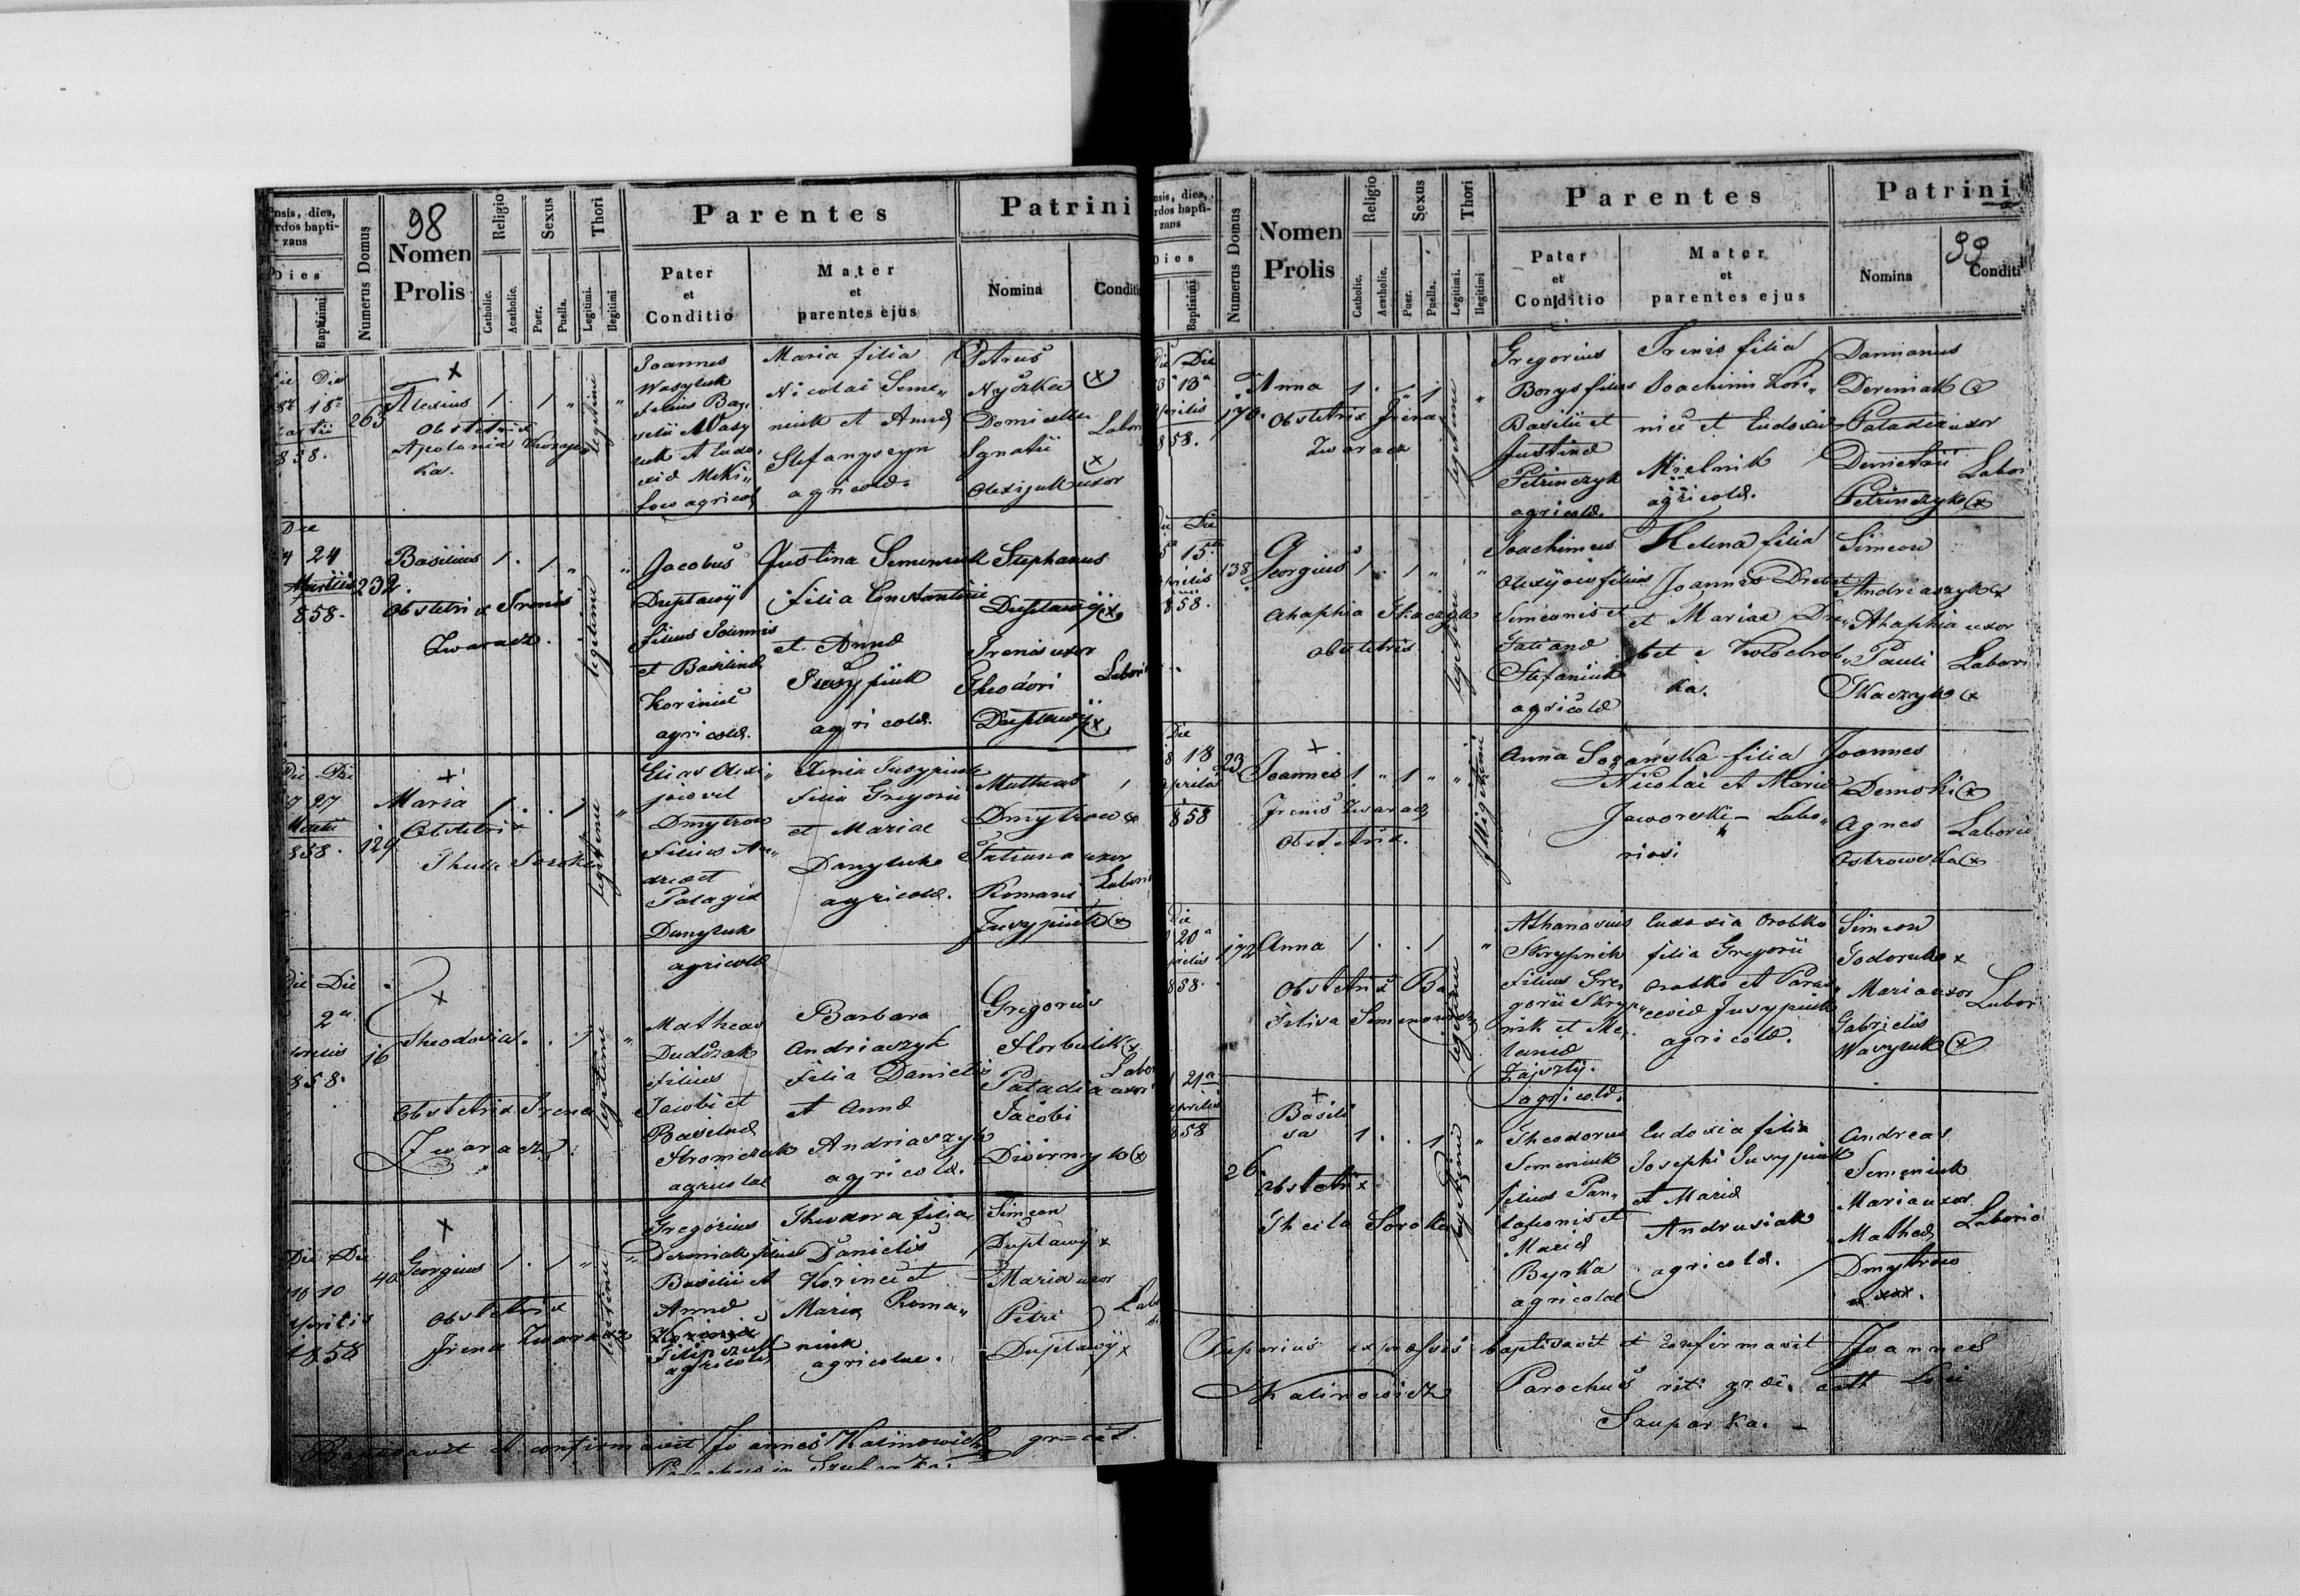 98
nsis, dies,
rdos bapti-
zans
Dies
Baptisimi
Numerus Domus
Nomen
Prolis
Religio
Catholic.
Acatholic.
Sexus
Puer.
Puella.
Thori
Legitimi.
Ilegitimi
Parentes
Pater
et
Conditio
Mater
et
parentes ejus
Patrini
Nomina
Conditi
Die
18
858.
263
Alexius 1. 1 "
Obstetrix
Apolonia
ka.
legitimi
Joannes
Wasyluk
filius Ba
silii Wasy
luk et Eudo
agricol
Maria filia
Nicolai Seme„
niuk et Anna
Stefanyszyn
agricola.
Petrus
Domicella
Ignatii
Olexijuk uxor
Labori
Die
24
Martii
858.
232.
Basilius 1. 1 "
Obstetrix Irenis
Zwaracz.
legitimi
Jacobus
Duplawÿ
filius Joannis
et Basilina
Korinic
agricola.
Justina Semeniuk
filia Constantini
et Anna
Jusypiuk
agricola.
Stephanus
Duplawÿ x
Irenis uxor
Theodori
Duplawÿ x
Labori
Die Die
27 27
858.
129
Maria 1. . 1
Obstetrix
Thecla Soroka
legitimi
Elias Olexi„
jow vel
Dmytrow
filius An„
drea et
Palagia
Danyluk
agricola
Xenia Jusypiuk
filia Gregorii
et Maria
Danyluk
agricola.
Matheas
Dmytrow x
Tatiana uxor
Romani
Jusypiuk x
Labori
Die Die
2a
858.
16
Theodosia. . 1
Obstetrix Irena
Zwaracz.
legitimi
Matheas
Dudczak
filius
Jacobi et
Basilina
Hromczuk
agricolae
Barbara
Andriaszyk
filia Danielis
et Anna
Andriaszyk
agricola.
Gregorius
Horbulik x
Paladia uxor
Jacobi
Dwirnyk x
Labor
Die Die
10 10
Aprilis
1858
40
Georgius 1. 1 "
Obstetrix
Irena Zwaracz
legitimi
Gregorius
Dereniak filius
Basilii et
Anna
Filipczuk
agricola
Theodora filia
Danielis
Korinic et
Maria Roma„
niuk
agricolae.
Simeon
Duplawÿ x
Maria uxor
Petri
Duplawÿ x
Labo
Baptisavit et confirmavit Joannes Kalinowicz gr=cat.
Parochus in Szuparka.
99
nsis, dies,
rdos bapti-
zans
Dies
Baptisimi
Numerus Domus
Nomen
Prolis
Religio
Catholic.
Acatholic.
Sexus
Puer.
Puella.
Thori
Legitimi.
Ilegitimi
Parentes
Pater
et
Conditio
Mater
et
parentes ejus
Patrini
Nomina
Conditi
Die Die
13a
Aprilis
858.
170.
Anna 1. " 1
Obstetrix Irena
Zwaracz
legitimi
Gregorius
Borys filius
Basilii et
Justina
Petrinczyk
agricola.
Irenis filia
Joachimi Kori„
nic et Eudoxia
Mielnik
agricola.
Damianus
Dereniak x
Paladia uxor
Demetrii
Petrinczyk x
Labor
Die
15
Aprilis
858.
138
Georgius 1. 1 "
Ahaphia Tkaczyk
obstetrix
legitimi
Joachimus
Olexijow filius
Simeonis et
Tatiana
Stefaniuk
agricola
Helena filia
Joannes Drebet
et Mariae Dre„
bet e Wolochrob„
ka.
Simeon
Andriaszyk x
Ahaphia uxor
Pauli
Tkaczyk x
Labori
Die
18
Aprilis
858
23
Joannes 1 " 1 " "
Irenis Zwaracz
Obstetrix.
Illigetimi
Anna Sozańska filia
Nicolai et Maria
Jaworski – Labo„
riosi
Joannes
Demski x
Agnes
Ostrowska x
Laborio
Die
20a
858.
172
Anna 1. . 1
Obstetrix Ba
silisa Semenowicz
legitimi
Athanasius
Skrypnik
filius Gre„
gorii Skryp„
nik et Me„
lania
Zajszly.
agricola.
Eudoxia Orobko
filia Gregorii
Orobko et Paras„
cevia Jusypiuk
agricola.
Simeon
Todoruk x
Maria uxor
Gabrielis
Wasyluk x
Labor
21a
Aprilis
858
26
Basili
sa 1. . 1
Obstetrix
Thecla Soroka
legitimi
Theodorus
Semeniuk
filius Pan„
taleonis et
Maria
Byrka
agricolae
Eudoxia filia
Josephi Jusypiuk
et Maria
Andrusiak
agricola.
Andreas
Semeniuk
Maria uxor
Mathea
Dmytrow
Laborio
Superius expressis baptisavit et confirmavit Joannes
Kalinowicz Parochus rit: graec. cath Loci
Szuparka. –